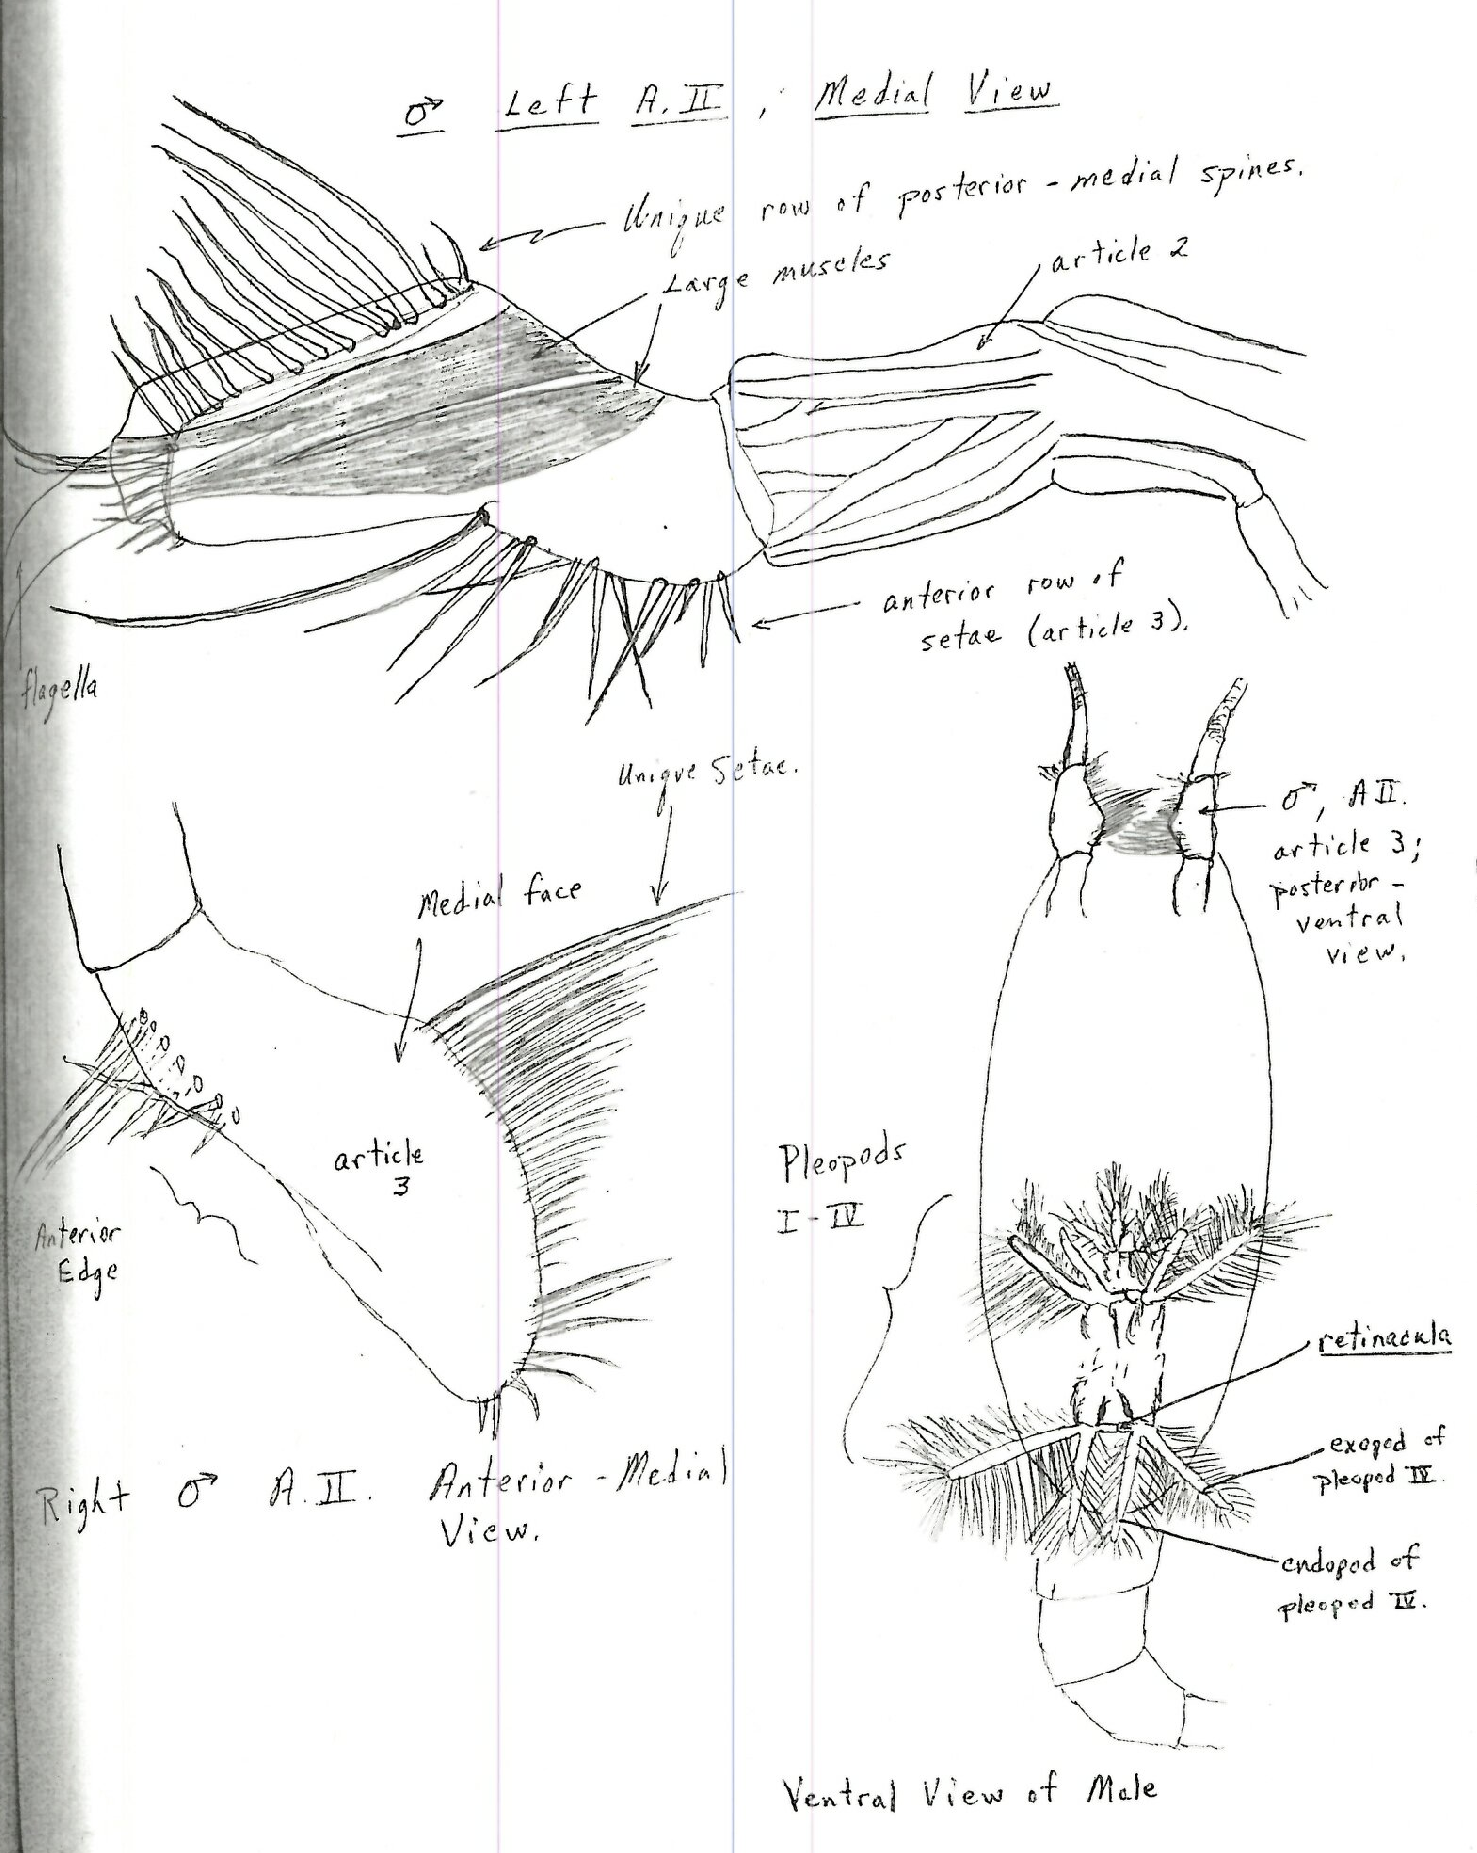 ♂ Left A.II, Medial View
Unique row of posterior-medial spines.
Large muscles
article 2
anterior row of
setae (article 3).
flagella
Unique Setae.
Medial face
♂, AII.
article 3;
posterior-
ventral
view.
article
3
Pleopods
I-IV
Anterior
Edge
retinacula
exopod of
pleopod IV.
Right ♂ A.II. Anterior-Medial
View.
endopod of
pleopod IV.
Ventral View of Male